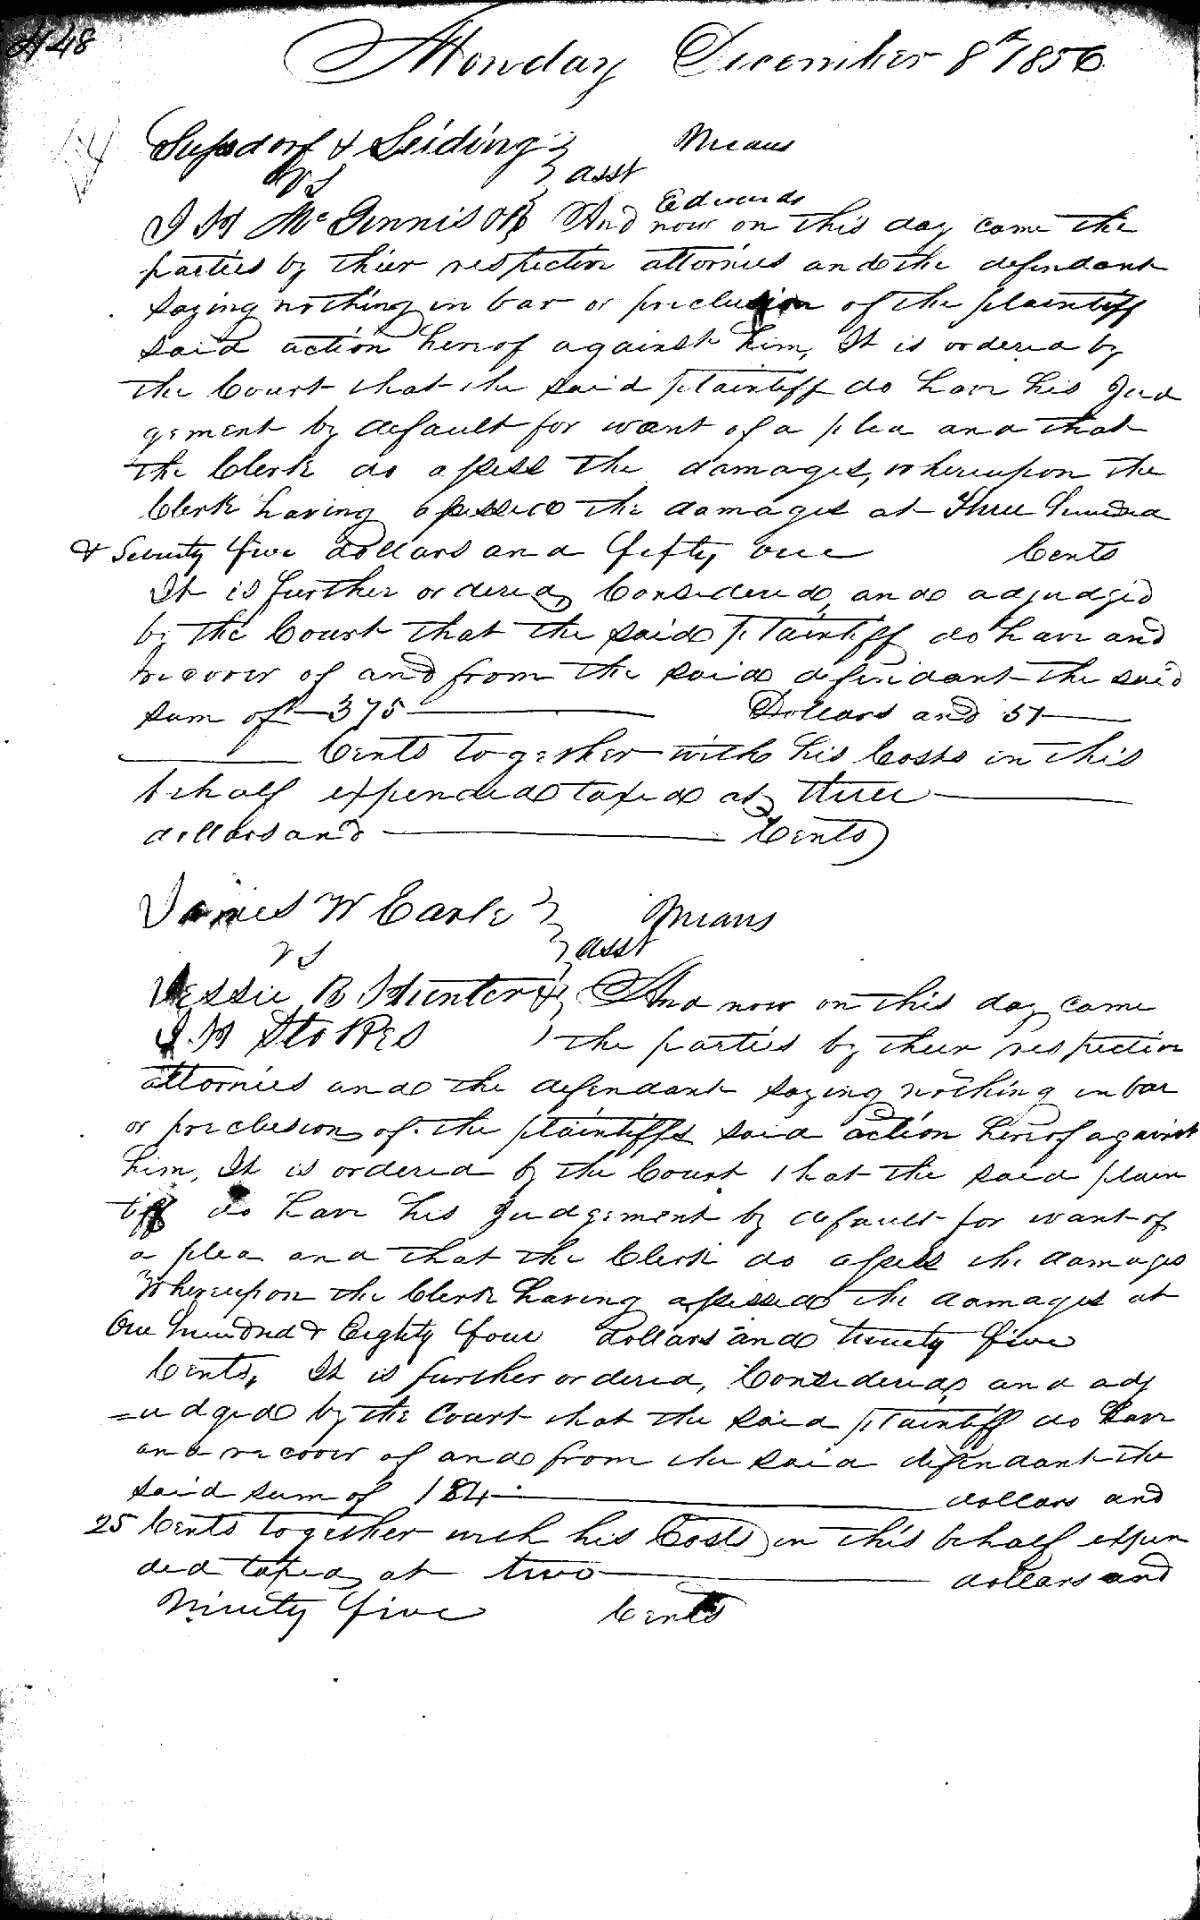 448
Monday December 8th 1856
Susdorf & Seiding } Means
vs } asst
Edwards
J H McGinnis } And now on this day came the
parties by thier respective attornies and the defendant
saying nothing in bar or preclusion of the plaintiff
said action hereof against him, It is ordered by
the Court that the said plaintiff do have his Jud
gement by default for want of a plea and that
the Clerk do assess the damages, whereupon the
Clerk having assessed the damages at Three hundred
& Seventy five dollars and fifty one Cents
It is further ordered, Considered, and adjudged
by the Court that the said plaintiff do have and
recover of and from the said defendant the said
sum of 375 Dollars and 51
Cents together with his Costs in this
behalf expended taxed at three
dollars and Cents
James W Earle } Means
vs } asst
Jessie B Hunter & } And now on this day came
J. H Stokes } the parties by thier respective
attornies and the defendant saying nothing in bar
or preclusion of the plaintiffs said action hereof against
him, It is ordered by the Court that the said plain
tiff do have his Judgement by default for want of
a plea and that the Clerk do assess the damages
Whereupon the Clerk having assessed the damages at
One hundred & Eighty four dollars and twenty five
Cents, It is further ordered, Considered, and adj
=udged by the Court that the said plaintiff do have
and recover of and from the said defendant the
said sum of 184 dollars and
25 Cents together with his Costs in this behalf expen
ded taxed at two dollars and
Ninety five Cents